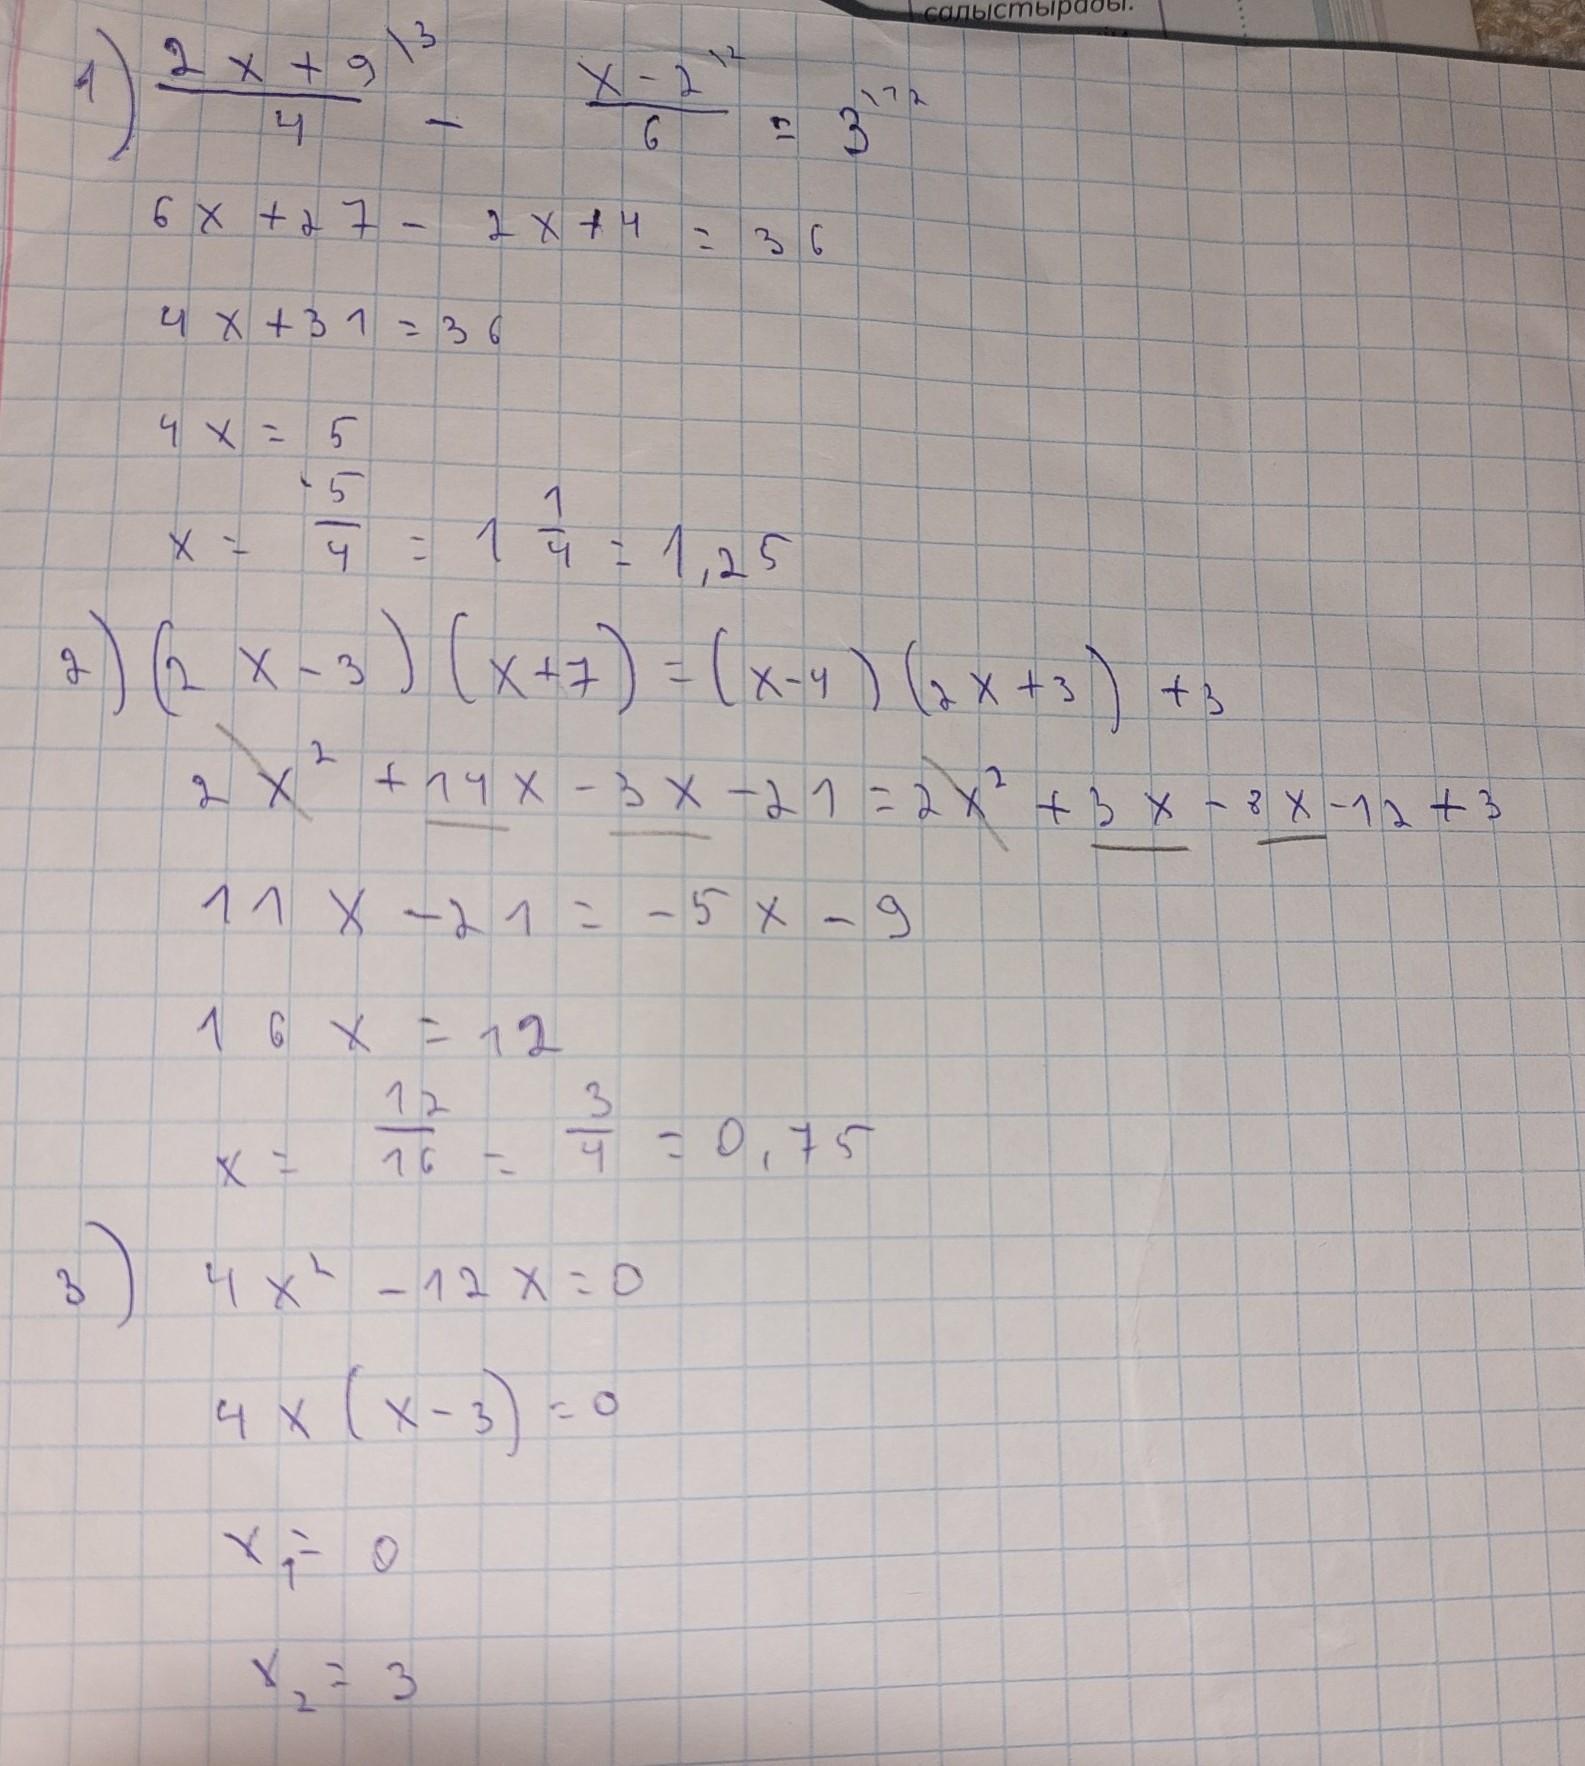 салыстырады.
1) (2x+9)/4 \3 - (x-2)/6 \2 = 3 \12
6x+27-2x+4=36
4x+31=36
4x=5
x=5/4=1 1/4=1,25
2) (2x-3)(x+7)=(x-4)(2x+3)+3
2x²+14x-3x-21=2x²+3x-8x-12+3
11x-21=-5x-9
16x=12
x=12/16=3/4=0,75
3) 4x²-12x=0
4x(x-3)=0
x₁=0
x₂=3